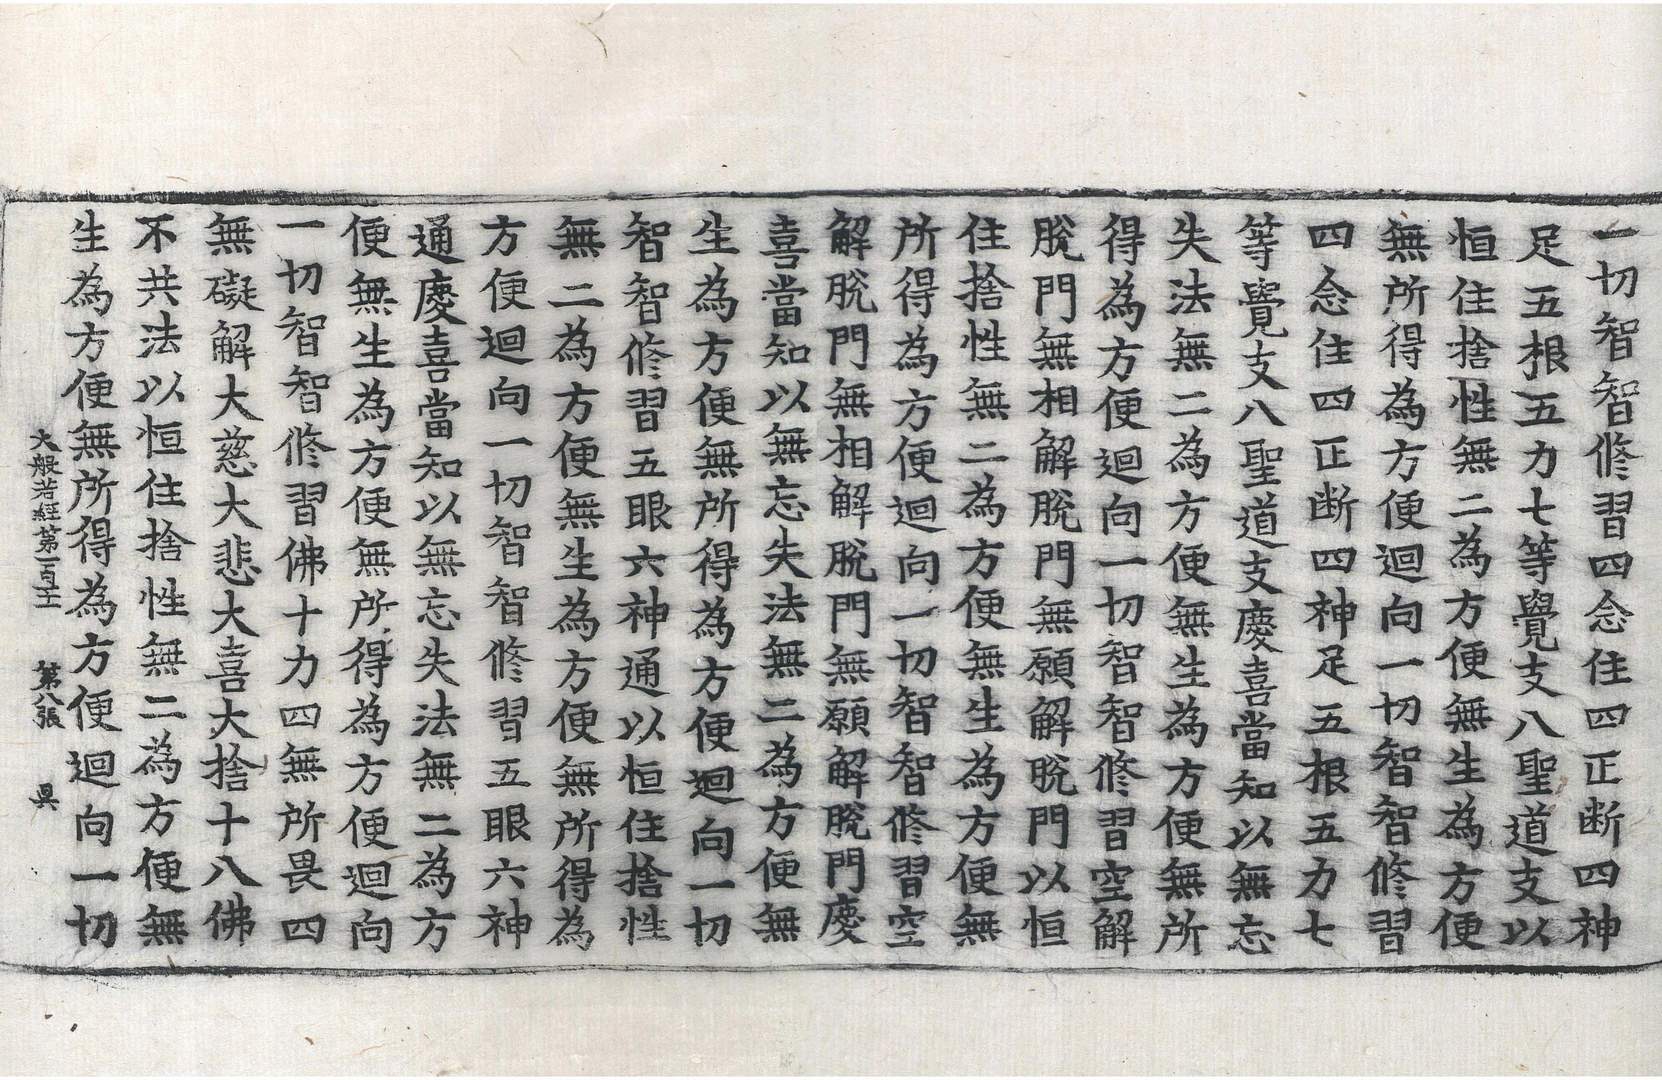 一切智智修習四念住四正断四神
足五根五力七等覺支八聖道支以
恒住捨性無二為方便無生為方便
無所得為方便迴向一切智智修習
四念住四正断四神足五根五力七
等覺支八聖道支慶喜當知以無忘
失法無二為方便無生為方便無所
得為方便迴向一切智智修習空解
脫門無相解脫門無願解脫門以恒
住捨性無二為方便無生為方便無
所得為方便迴向一切智智修習空
解脫門無相解脫門無願解脫門慶
喜當知以無忘失法無二為方便無
生為方便無所得為方便迴向一切
智智修習五眼六神通以恒住捨性
無二為方便無生為方便無所得為
方便迴向一切智智修習五眼六神
通慶喜當知以無忘失法無二為方
便無生為方便無所得為方便迴向
一切智智修習佛十力四無所畏四
無礙解大慈大悲大喜大捨十八佛
不共法以恒住捨性無二為方便無
生為方便無所得為方便迴向一切
大般若経第一百十二 第八張 昃